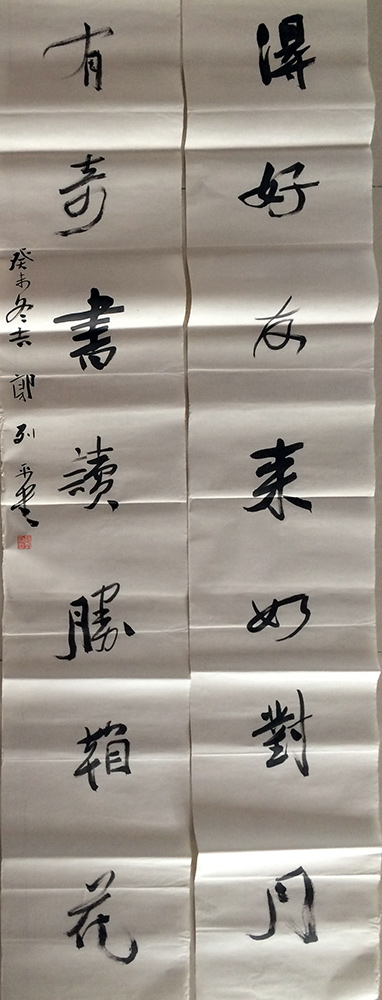 得好友来如對月
有奇書讀勝看花
癸未冬吉 列平書